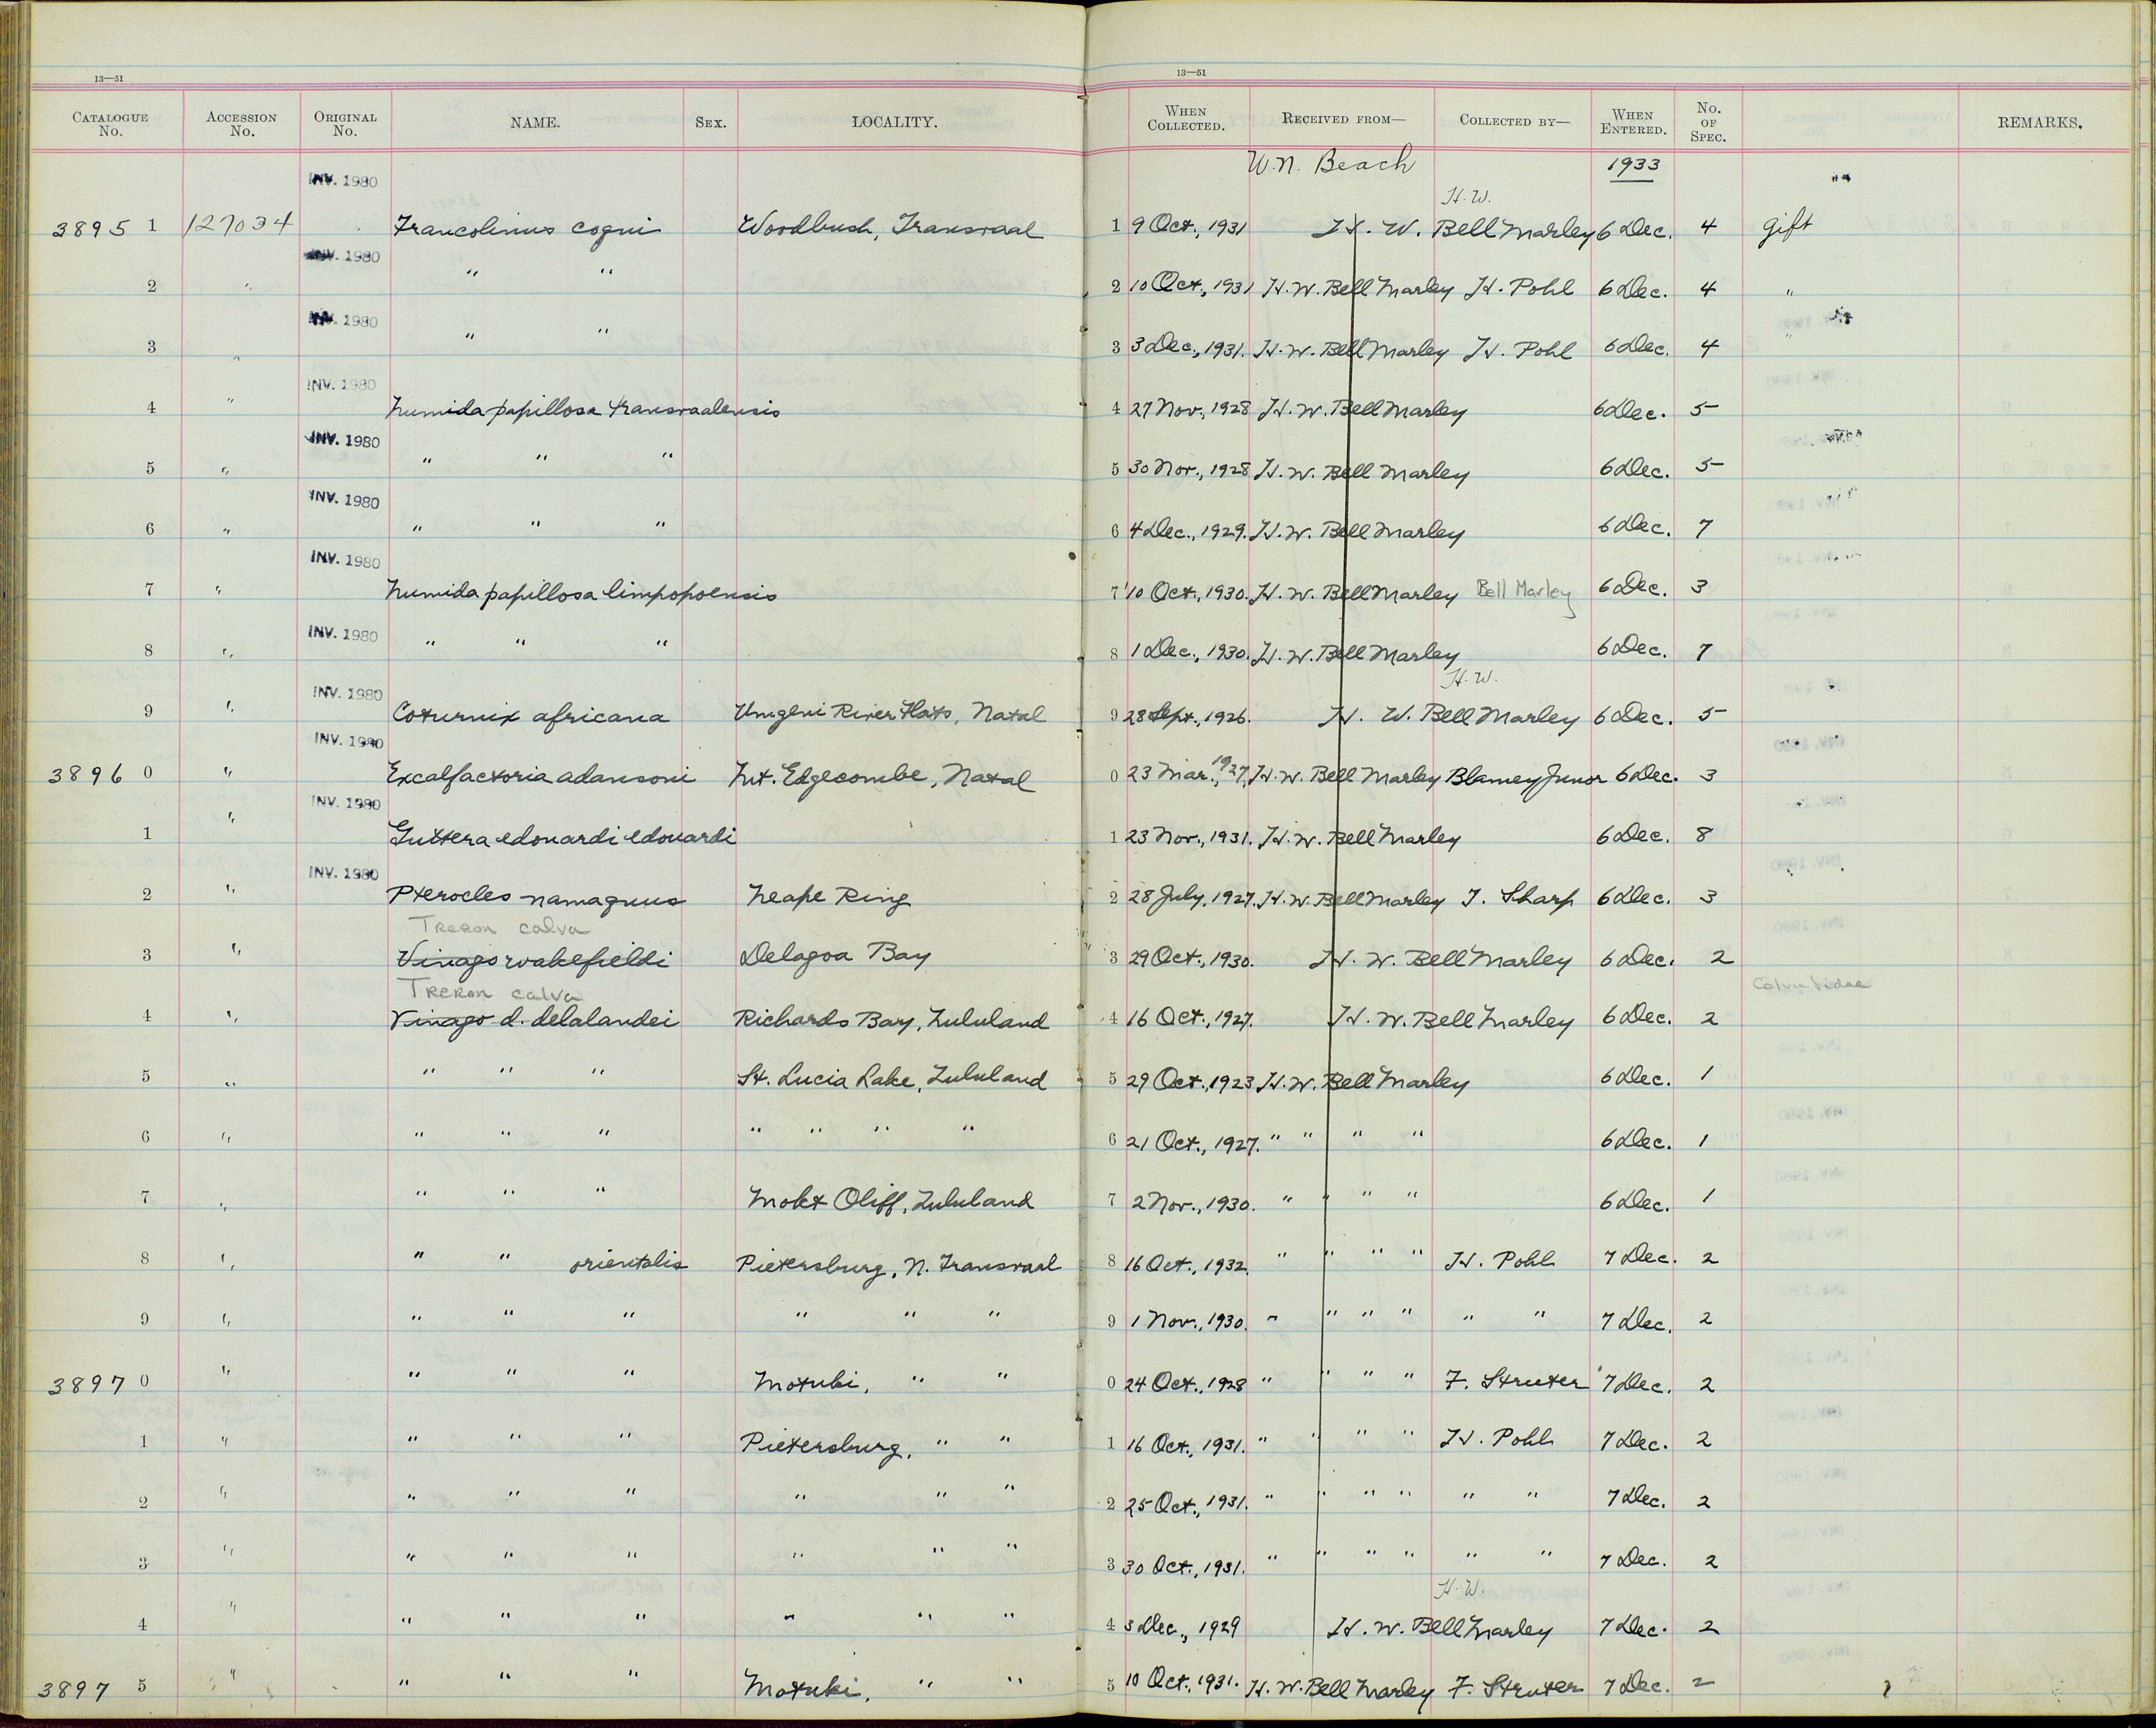 13—51 13—51
CATALOGUE No. ACCESSION No. ORIGINAL No. NAME. SEX. LOCALITY. WHEN COLLECTED. RECEIVED FROM— COLLECTED BY— WHEN ENTERED. No. OF SPEC. REMARKS.
W.N. Beach 1933
INV. 1980
H.W.
3895 1 127034 Francolinus coqui Woodbush, Transvaal 1 9 Oct., 1931 H. W. Bell Marley 6 Dec. 4 gift
INV. 1980
2 " " " 2 10 Oct., 1931 H. W. Bell Marley H. Pohl 6 Dec. 4 "
INV. 1980
3 " " " 3 3 Dec., 1931. H. W. Bell Marley H. Pohl 6 Dec. 4 "
INV. 1980
4 " Numida papillosa transvaalensis 4 27 Nov., 1928 H. W. Bell Marley 6 Dec. 5
INV. 1980
5 " " " " 5 30 Nov., 1928 H. W. Bell Marley 6 Dec. 5
INV. 1980
6 " " " " 6 4 Dec., 1929. H. W. Bell Marley 6 Dec. 7
INV. 1980
7 " Numida papillosa limpopoensis 7 10 Oct., 1930. H. W. Bell Marley Bell Marley 6 Dec. 3
INV. 1980
8 " " " " 8 1 Dec., 1930. H. W. Bell Marley 6 Dec. 7
INV. 1980
H.W.
9 " Coturnix africana Umgeni River Flats, Natal 9 28 Sept., 1926. H. W. Bell Marley 6 Dec. 5
INV. 1980
3896 0 " Excalfactoria adansoni Mt. Edgecombe, Natal 0 23 Mar., 1927, H. W. Bell Marley Blamey Junor 6 Dec. 3
INV. 1980
1 " Guttera edouardi edouardi 1 23 Nov., 1931. H. W. Bell Marley 6 Dec. 8
INV. 1980
2 " Pterocles namaquus Neape Ring 2 28 July, 1927. H. W. Bell Marley T. Sharp 6 Dec. 3
Treron calva
3 " Vinago wakefieldi Delagoa Bay 3 29 Oct., 1930. H. W. Bell Marley 6 Dec. 2
Treron calva Columbidae
4 " Vinago d. delalandei Richards Bay, Zululand 4 16 Oct., 1927. H. W. Bell Marley 6 Dec. 2
5 " " " " St. Lucia Lake, Zululand 5 29 Oct., 1923 H. W. Bell Marley 6 Dec. 1
6 " " " " " " " " 6 21 Oct., 1927. " " " " 6 Dec. 1
7 " " " " Mokt Oliff, Zululand 7 2 Nov., 1930. " " " " 6 Dec. 1
8 " " " orientalis Pietersburg, N. Transvaal 8 16 Oct., 1932. " " " " H. Pohl 7 Dec. 2
9 " " " " " " " 9 1 Nov., 1930. " " " " " " 7 Dec. 2
3897 0 " " " " Motubi, " " 0 24 Oct., 1928 " " " " F. Struter 7 Dec. 2
1 " " " " Pietersburg, " " 1 16 Oct., 1931. " " " " H. Pohl 7 Dec. 2
2 " " " " " " " 2 25 Oct., 1931. " " " " " " 7 Dec. 2
3 " " " " " " " 3 30 Oct., 1931. " " " " " " 7 Dec. 2
H.W.
4 " " " " " " " 4 3 Dec., 1929 H. W. Bell Marley 7 Dec. 2
3897 5 " " " " Motubi, " " 5 10 Oct., 1931. H. W. Bell Marley F. Struter 7 Dec. 2